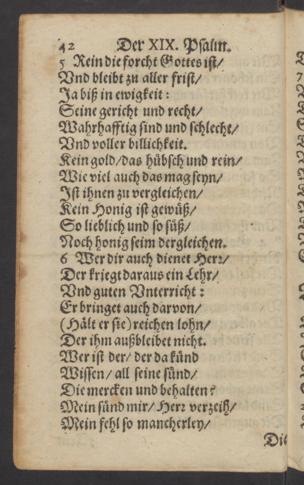 42 Der XIX. Psalm.
5 Rein die forcht Gottes ist/
Vnd bleibt zu aller frist/
Ja biß in ewigkeit:
Seine gericht und recht/
Wahrhafftig sind und schlecht/
Vnd voller billichkeit.
Kein gold/das hübsch und rein/
Wie viel auch das mag seyn/
Ist ihnen zu vergleichen/
Kein Honig ist gewüß/
So lieblich und so süß/
Noch honigseim dergleichen.
6 Wer dir auch dienet Herr/
Der kriegt daraus ein Lehr/
Vnd guten Vnterricht:
Er bringet auch darvon/
(Hält er sie) reichen lohn/
Der ihm außbleibet nicht.
Wer ist der/ der da künd
Wissen/ all seine sünd/
Die mercken und behalten?
Mein sünd mir/ Herr verzeih/
Mein fehl so mancherley/
Die